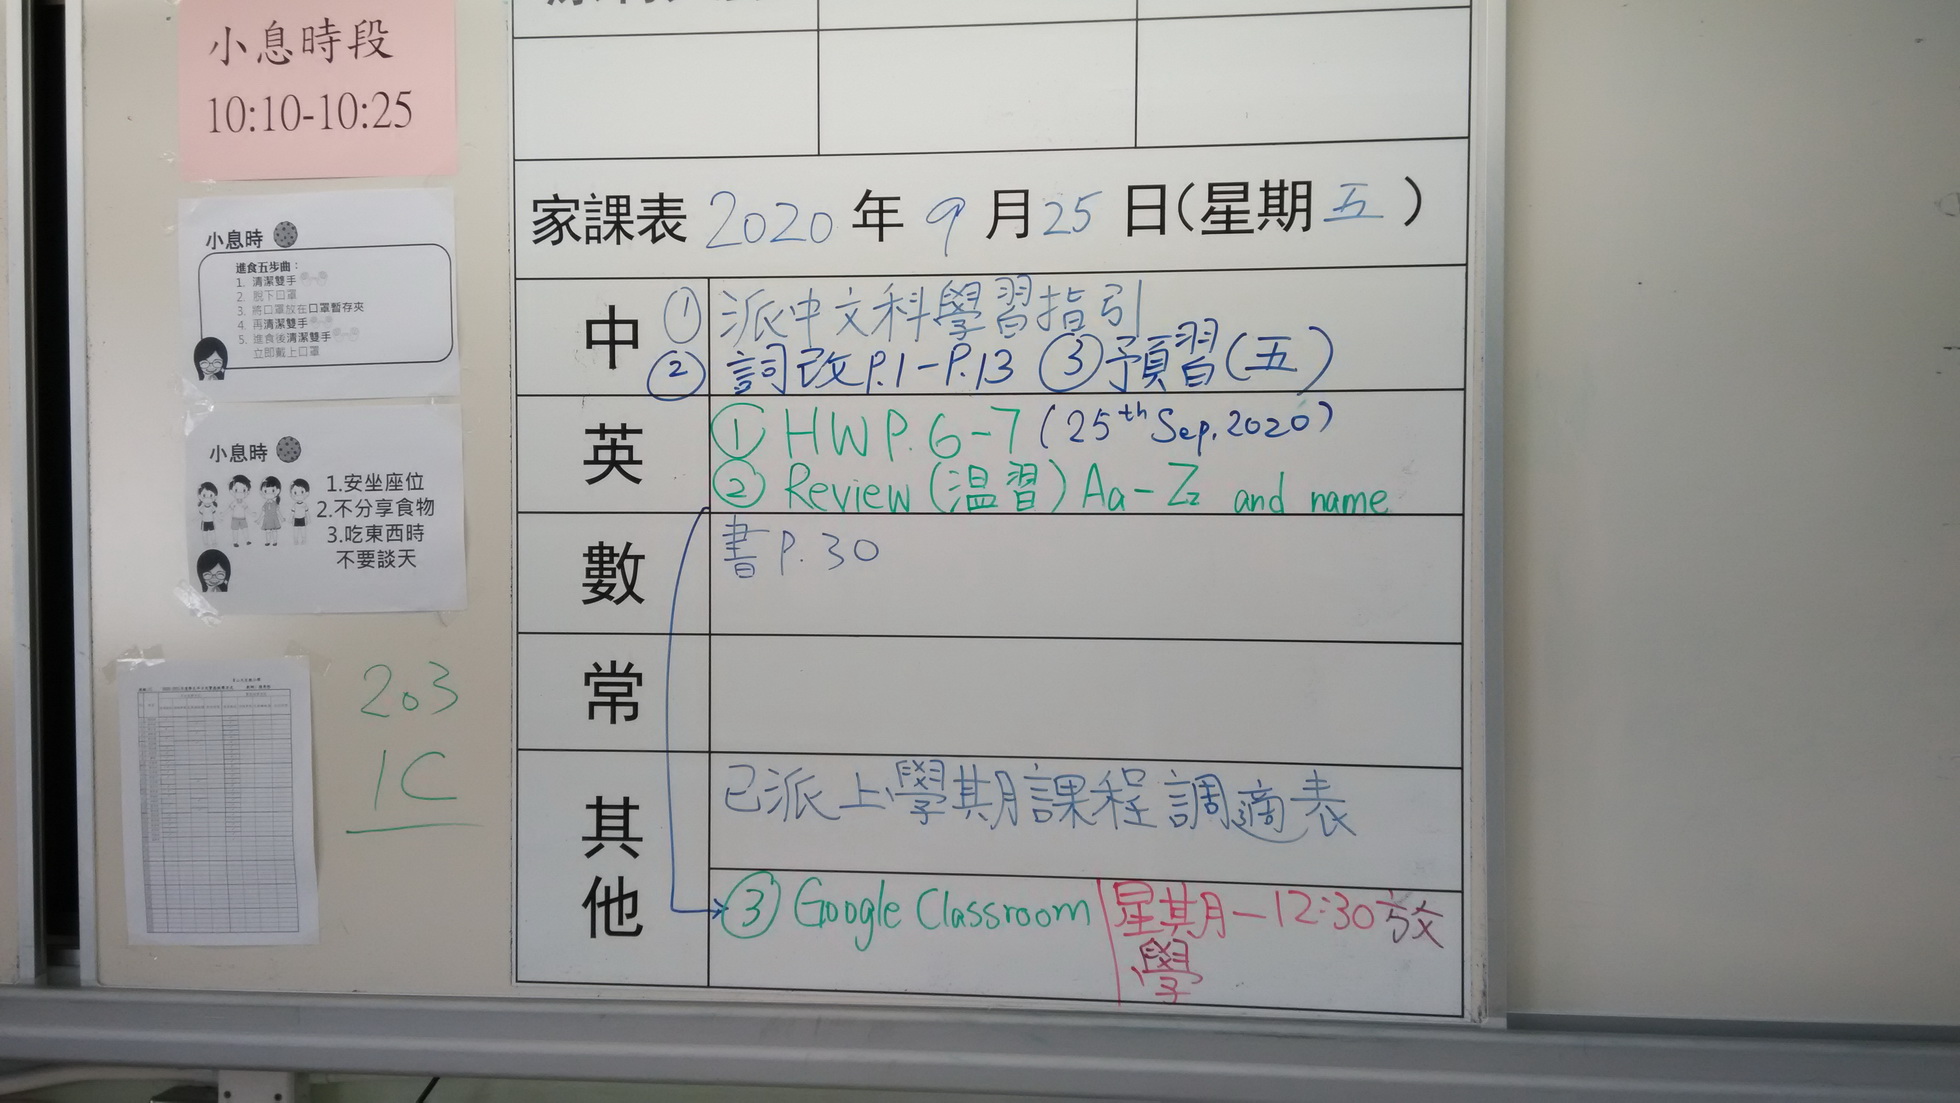 小息時段
10:10-10:25
小息時
進食五步曲：
1. 清潔雙手
2. 脫下口罩
3. 將口罩放在口罩暫存夾
4. 再清潔雙手
5. 進食後清潔雙手
立即戴上口罩
小息時
1.安坐座位
2.不分享食物
3.吃東西時
不要談天
203
1C
家課表 2020 年 9 月 25 日(星期 五 )
中 ① 派中文科學習指引
② 詞改P.1-P.13 ③預習(五)
英 ① HW P. 6-7 (25th Sep. 2020)
② Review (温習) Aa - Zz and name
數 書P. 30
常
其他 已派上學期課程調適表
③ Google Classroom 星期一12:30放
學